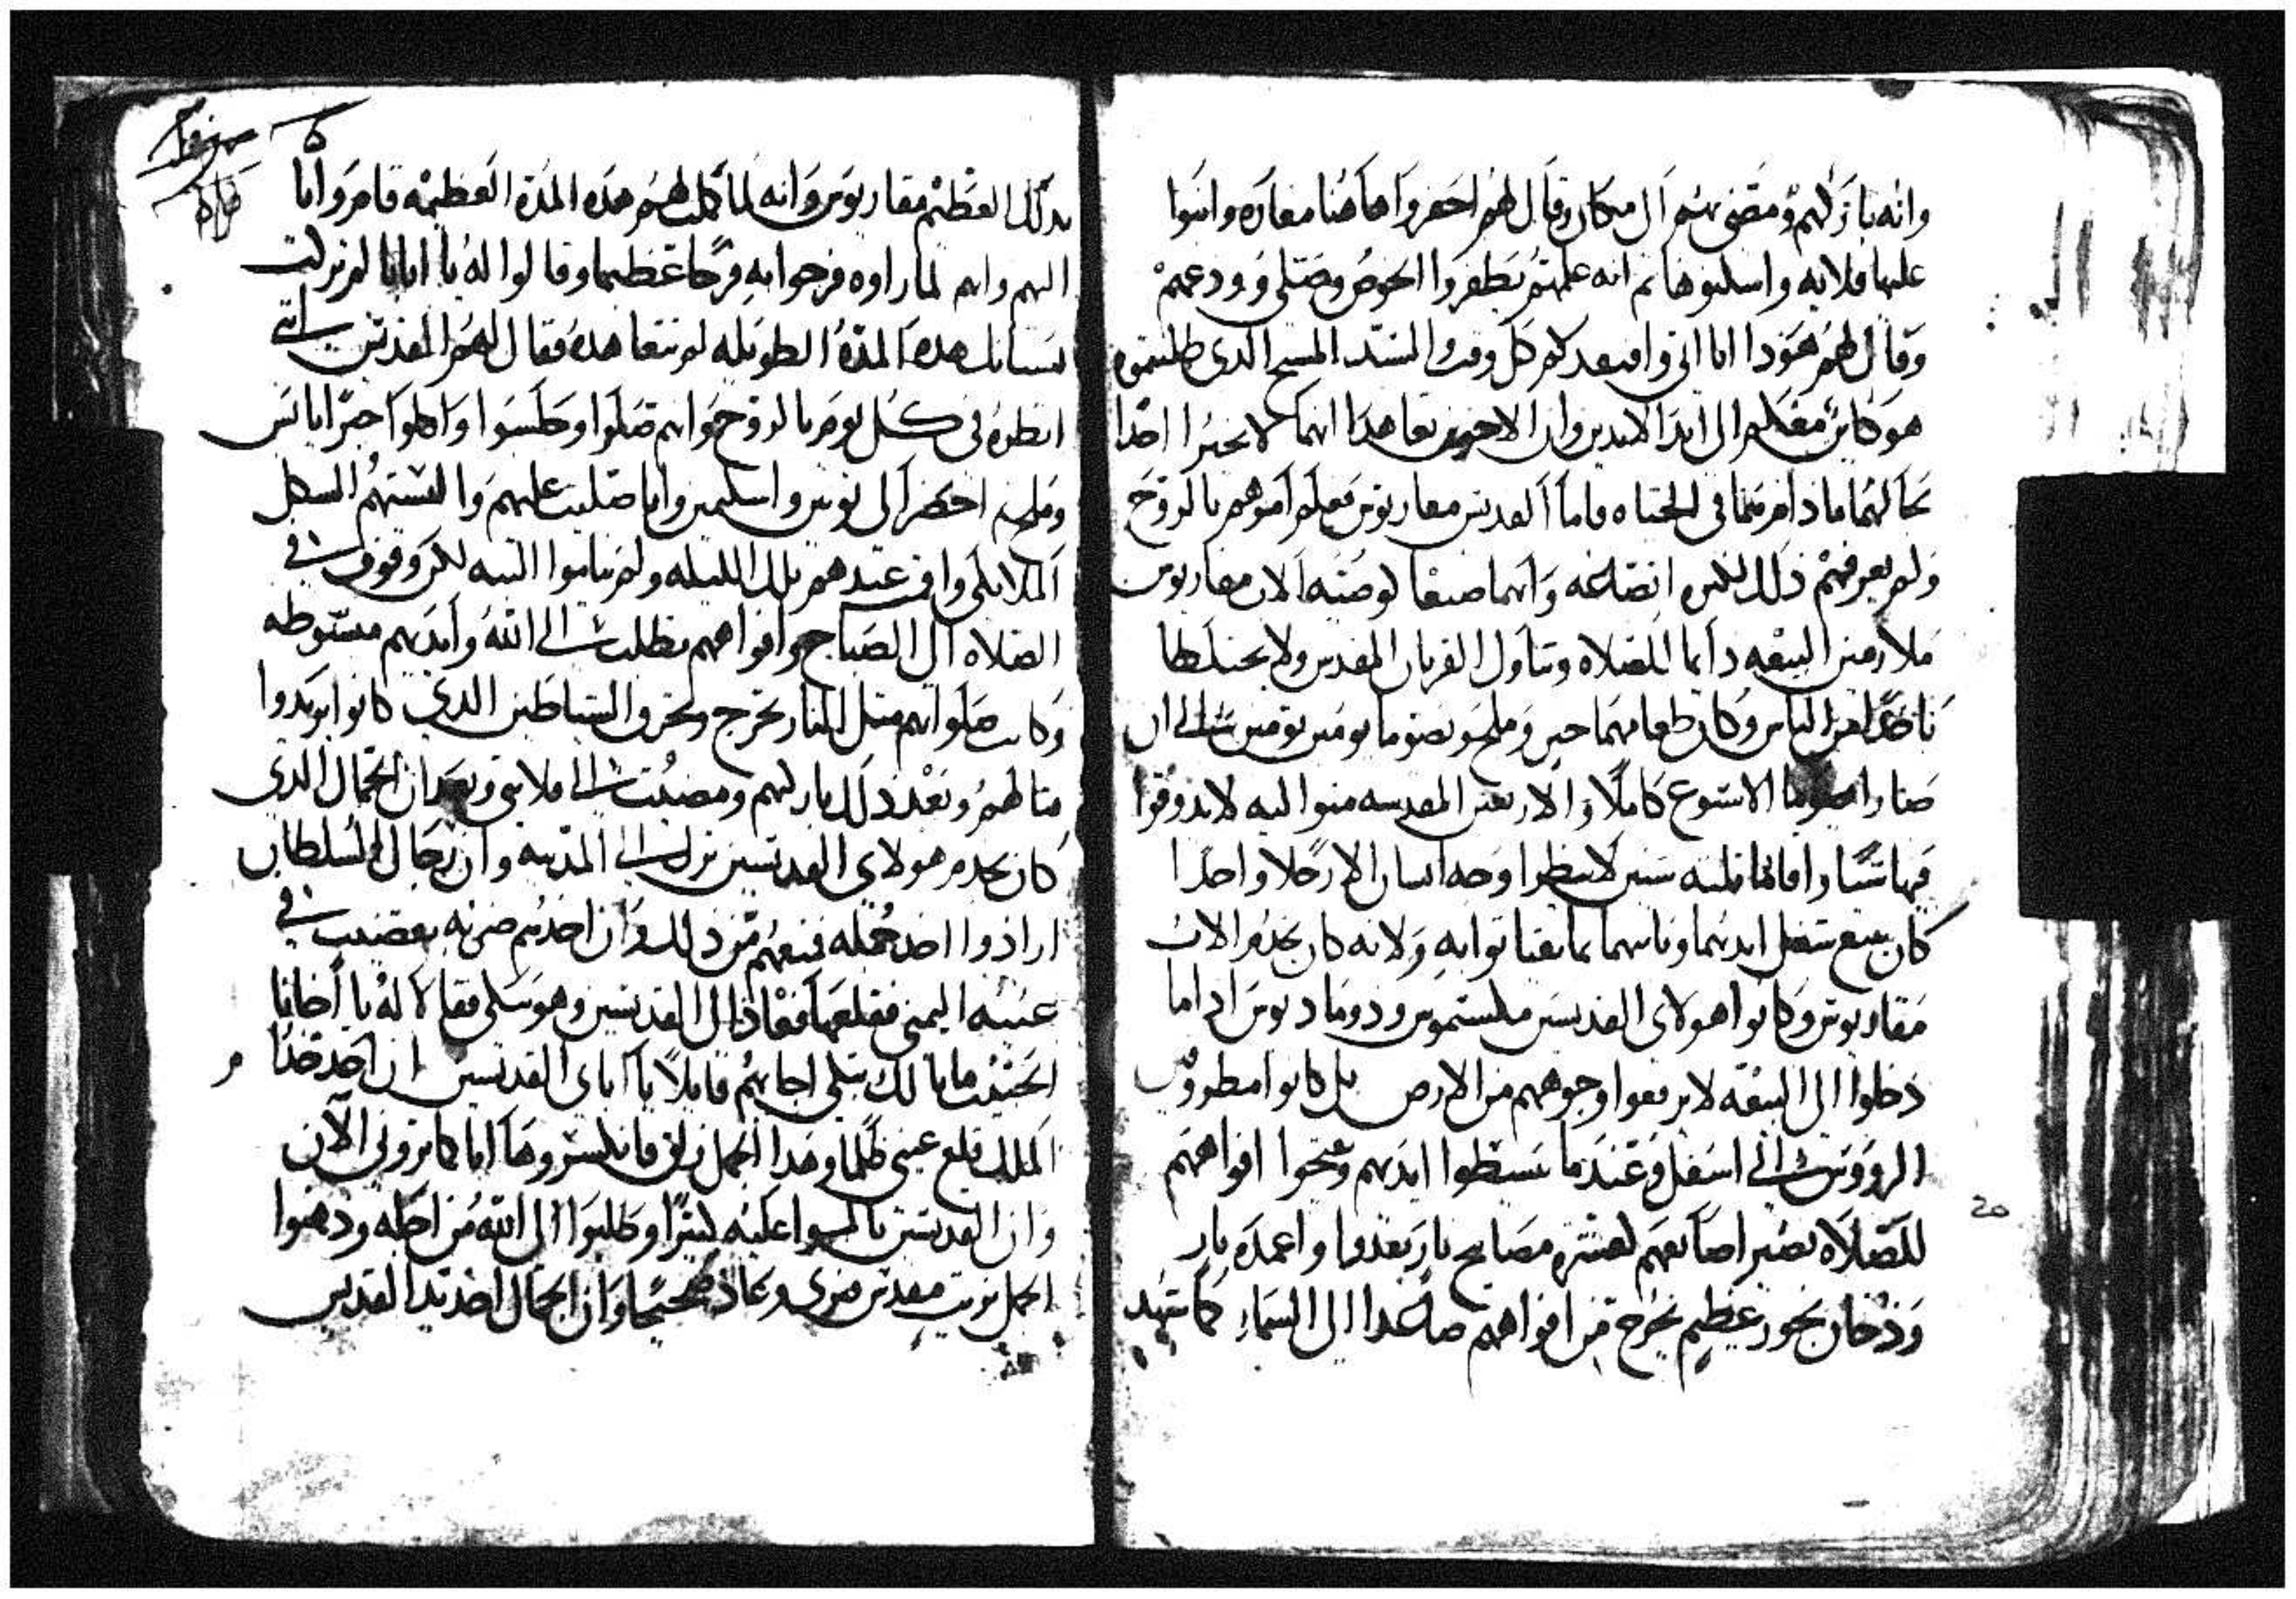 وانه باركهم ومضى بهم الى مكان وقال لهم احفروا هاهنا مغاره وابنوا
عليها قلايه واسكنوها ثم انه علمهم يظفروا الخوص وصلى وودعهم
وقال لهم هوذا انا اتي وافتقدكم كل وقت السيد المسيح الذى طلبتموه
هو كاين معكم الى ابد الابدين وان الاخوين تعاهدا انهما لا يخبرا احدا
بحالهما ما داموا في الحياه فاما القديس مقاريوس فعلم امرهم بالروح
ولم يعرفهم ذلك لكثره اتضاعه وانهما صنعا لوصيه الاب مقاريوس
ملازمين البيعه دايما للصلاه وتناول القربان المقدس ولا يختلطا
باحدا من الناس وكان طعامهما خبز وملح يصوما يومين يومين الى ان
صارا يصوما الاسبوع كاملا والاربعين المقدسه لا يذوقوا
فيها شيا واقاما ثلثه سنين لا ينظروا وجه انسان الا رجلا واحدا
كان يبيع شغل ايديهما وياتيهما بما يقتاتوا به ولانه كان يخدم الاب
مقاريوس وكانوا هولاى القديسين مكسيموس ودوماديوس اذا ما
دخلوا الى البيعه لا يرفعوا وجوههم من الارض بل كانوا مطروقين
الرووس الى اسفل وعندما يبسطوا ايديهم وفتحوا افواههم
للصلاه تصير اصابعهم لعشره مصابيح نار يقدوا واعمده نار
ودخان بخور عظيم يخرج من افواههم صاعدا الى السماء كما شهد
بذلك العظيم مقاريوس وانه لما كملت لهم هذه المدة العظيمه قام وانا
اليهم وانهم لما راوه فرحوا به فرحا عظيما وقالوا له يا ابانا لم نزلت
نسيانك هذه المدة الطويله لم تتعاهدنا فقال لهم القديس انني
انظركم في كل يوم بالروح وانهم صلوا وجلسوا واكلوا خبزا يابس
وملح احضر الى توبين واسكيمين وانا صليت عليهم والبستهم الشكل
الملايكي واقمت عندهم تلك الليله ولم يناموا البته لكن وقوف في
الصلاه الى الصباح وافواههم تطلب الى الله وايديهم مبسوطه
وكانت صلواتهم مثل النار تخرج وتحرق الشياطين الذي كانوا يريدوا
منالهم وبعد ذلك باركتهم ومضيت الى قلايتي وبعد ان الجمال الذى
كان يخدم هولاى القديسين نزل الى المدينه وان رجال السلطان
ارادوا اخذ جمله فمنعهم من ذلك وان احدهم ضربه بقضيب في
عينه اليمنى فقلعها فعاد الى القديسين وهو يبكي فقالا له يا اخانا
الحبيب ما بالك تبكي اجابهم قايلا يا اباى القديسين ان احد خدا
الملك قلع عيني ظلما وهذا الجمل زلق فانكسر وها انا كما تروني الان
وان القديسين تالموا عليه كثيرا وطلبوا الى الله من اجله ودهنوا
الجمل بزيت مقدس فبرى وعاد صحيحا وان الجمال اخذ يد القديس